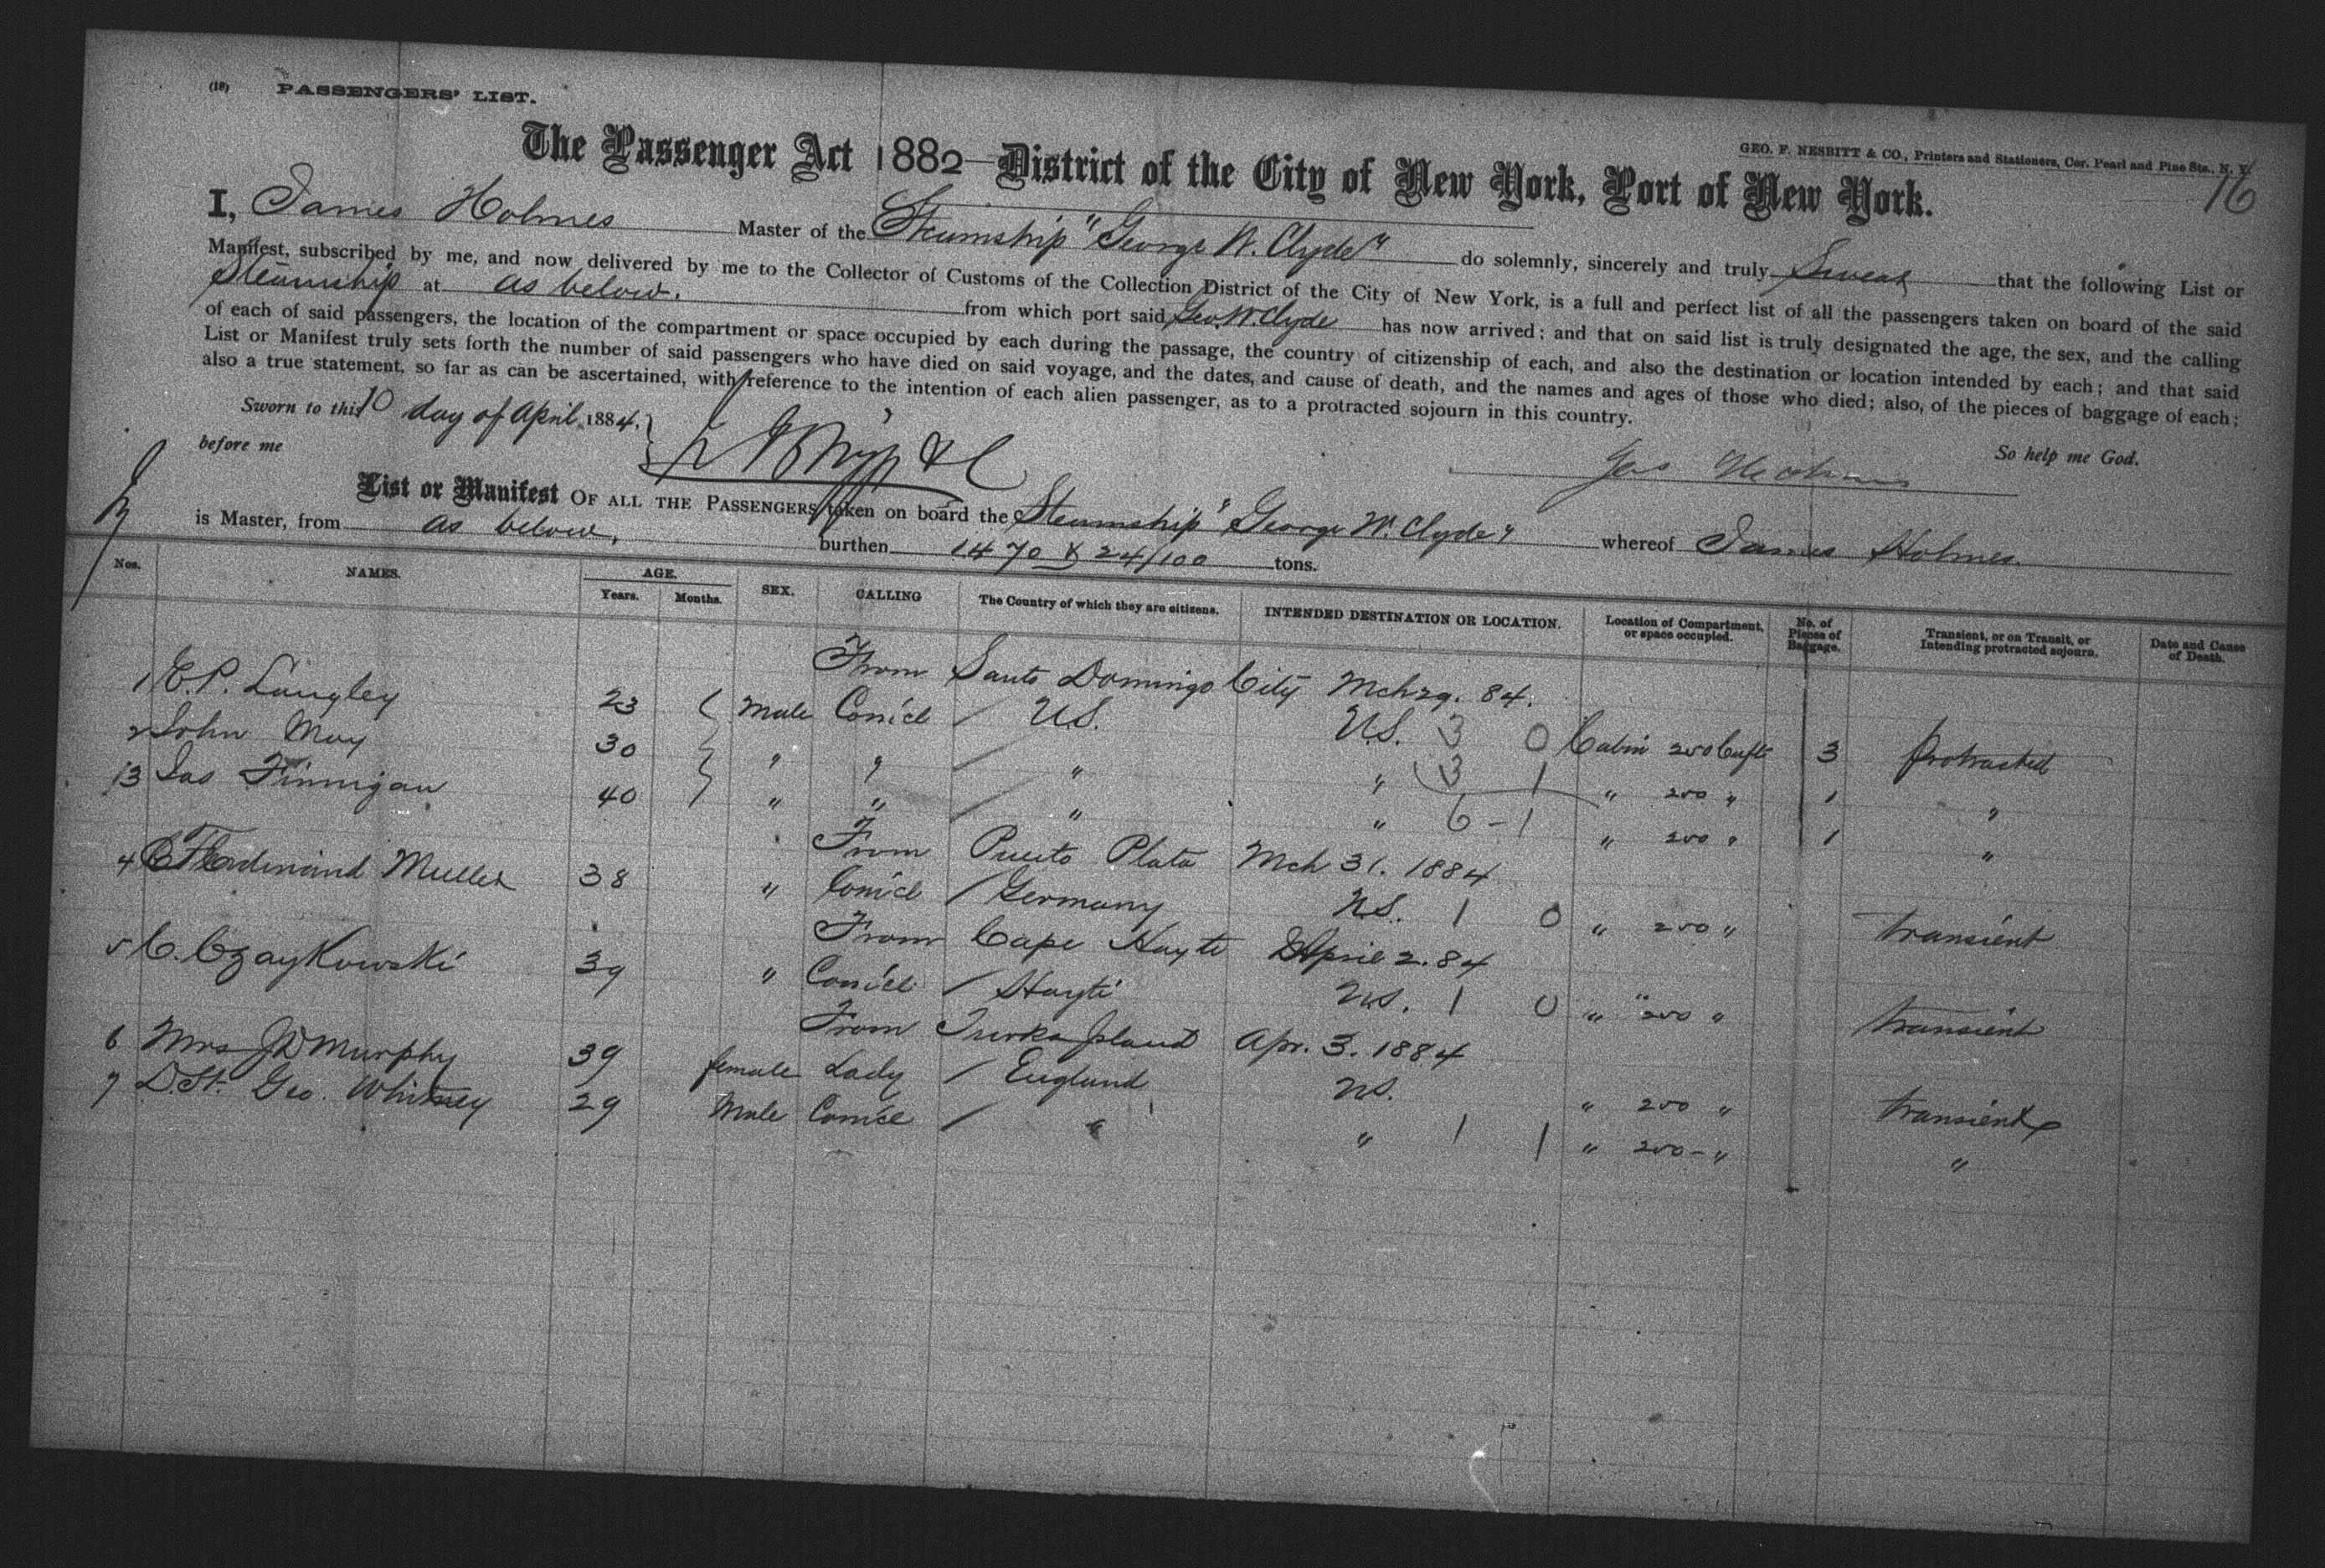 (18) PASSENGERS' LIST.
GEO. F. NESBITT & CO., Printers and Stationers, Cor. Pearl and Pine Sts., N. Y.
16
The Passenger Act 1882—District of the City of New York, Port of New York.
I, James Holmes Master of the Steamship "George W. Clyde" do solemnly, sincerely and truly Swear that the following List or
Manifest, subscribed by me, and now delivered by me to the Collector of Customs of the Collection District of the City of New York, is a full and perfect list of all the passengers taken on board of the said
Steamship at as below. from which port said Geo. W. Clyde has now arrived; and that on said list is truly designated the age, the sex, and the calling
of each of said passengers, the location of the compartment or space occupied by each during the passage, the country of citizenship of each, and also the destination or location intended by each; and that said
List or Manifest truly sets forth the number of said passengers who have died on said voyage, and the dates, and cause of death, and the names and ages of those who died; also, of the pieces of baggage of each;
also a true statement, so far as can be ascertained, with reference to the intention of each alien passenger, as to a protracted sojourn in this country.
So help me God.
Sworn to this 10 day of April 1884.
before me
Jas Holmes
List or Manifest OF ALL THE PASSENGERS taken on board the Steamship "George W. Clyde" whereof James Holmes.
is Master, from as below, burthen 1470 & 24/100 tons.
Nos. NAMES. AGE. Years. Months. SEX. CALLING The Country of which they are citizens. INTENDED DESTINATION OR LOCATION. Location of Compartment, or space occupied. No. of Pieces of Baggage. Transient, or on Transit, or Intending protracted sojourn. Date and Cause of Death.
From Santo Domingo City Mch 29. 84.
1 E. P. Langley 23 Male Com'cl / U.S. U.S. 3 0 Cabin 200 Cuft 3 protracted
2 John May 30 " " / " " 3 1 " 200 " 1 "
3 Jas Finnigan 40 " " / " " 6 - 1 " 200 " 1 "
From Puerto Plata Mch 31. 1884
4 Ferdinand Muller 38 " Com'cl / Germany U.S. 1 0 " 200 " transient
From Cape Hayti April 2. 84
5 C. Czaykowski 39 " Com'cl / Hayti U.S. 1 0 " 200 " transient
From Turks Island Apr. 3. 1884
6 Mrs J D Murphy 39 female Lady / England U.S. " 200 " transient
7 D. St. Geo. Whitney 29 Male Com'cl / " " 1 1 " 200 - " "